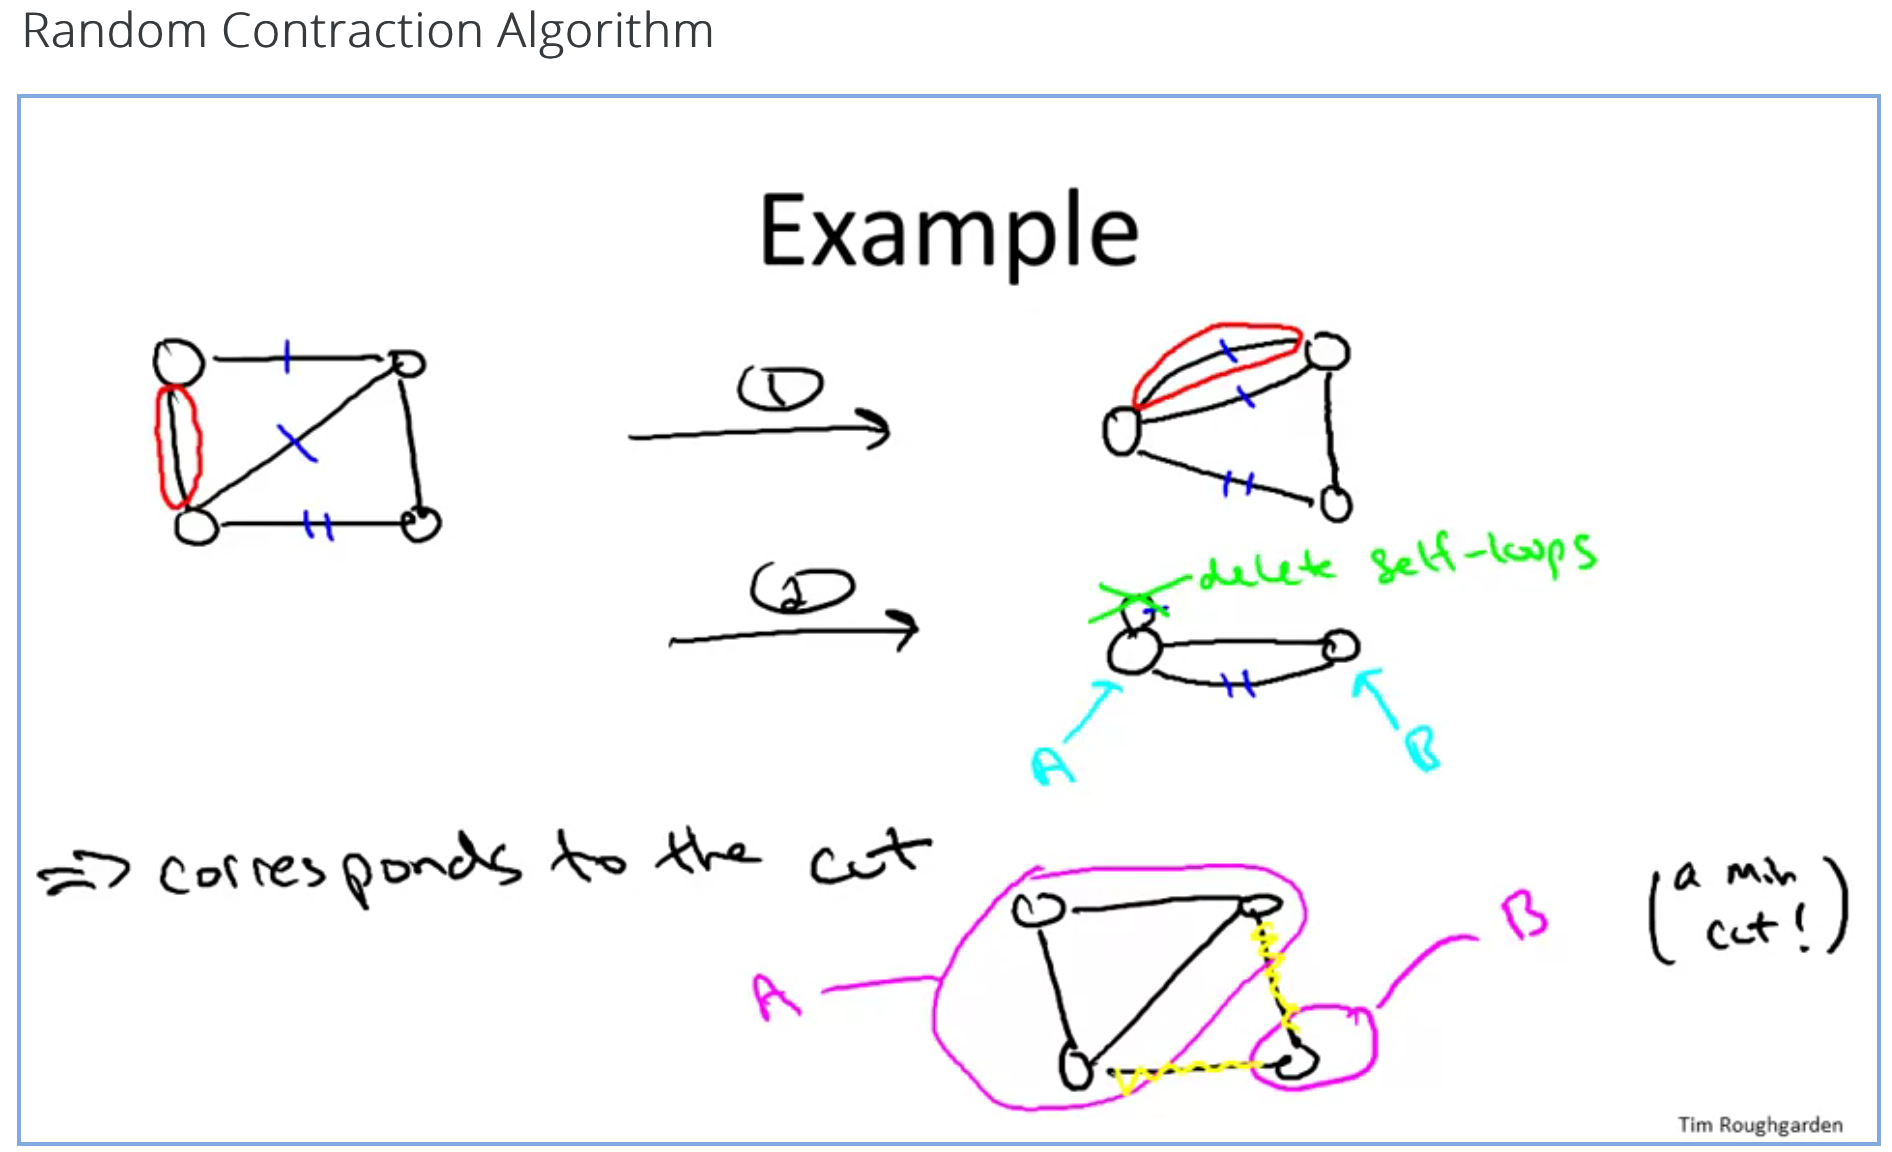 Random Contraction Algorithm
Example
1
delete self-loops
2
A
B
=> corresponds to the cut
(a min
cut!)
A
B
Tim Roughgarden